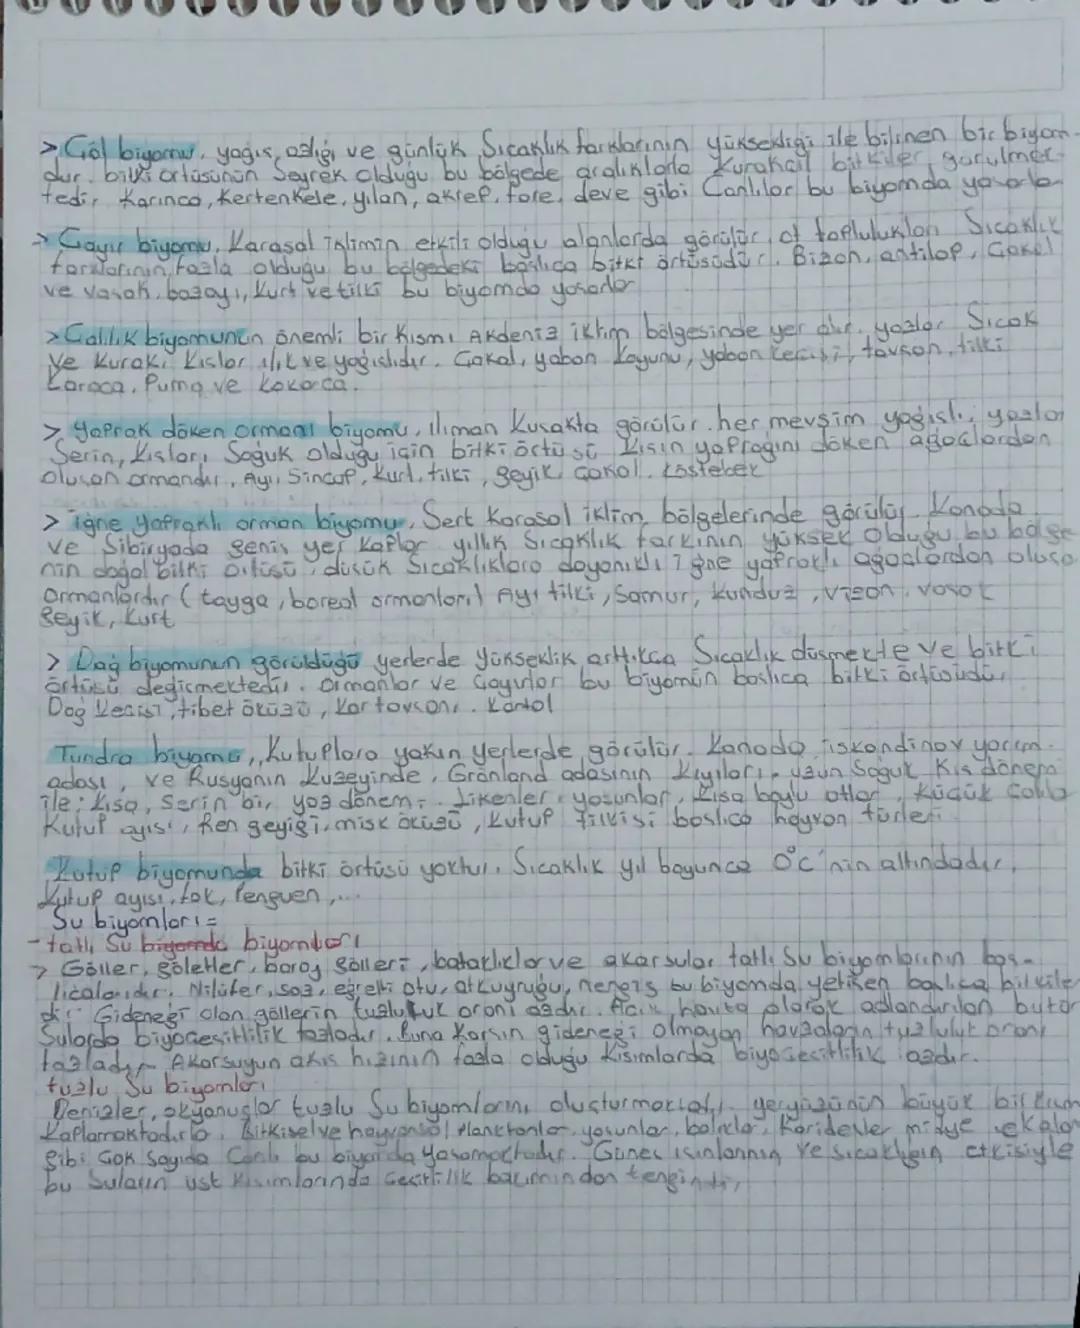 > Çöl biyomu, yağış azlığı ve günlük Sıcaklık farklarının yüksekliği ile bilinen bir biyom-
dur. bitki örtüsünün Seyrek olduğu bu bölgede aralıklarla Kurakçıl bitkiler görülmek-
tedir Karınca, Kertenkele, yılan, akrep, fare, deve gibi Canlılar bu biyomda yaşarla
> Çayır biyomu, Karasal iklimin etkili olduğu alanlarda görülür, ot toplulukları Sıcaklık
farklarının fazla olduğu bu bölgedeki başlıca bitki örtüsüdür. Bizon, antilop, Çakal
ve vaşak, bozayı, Kurt ve tilki bu biyomda yaşarlar
> Çalılık biyomunun önemli bir Kısmı Akdeniz iklim bölgesinde yer alır. yazlar Sıcak
ve Kurak, Kışlar ılık ve yağışlıdır. Çakal, yaban Koyunu, yaban Keçisi, tavşan, tilki
Karaca, Puma ve Kokarca.
> Yaprak döken ormanı biyomu, Iliman Kuşakta görülür. her mevsim yağışlı, yazları
Serin, Kışları Soğuk olduğu için bitki örtüsü Kışın yaprağını döken ağaçlardan
oluşan ormandır, Ayı, Sincap, Kurt, tilki, geyik, Çakal. Köstebek
> iğne yapraklı orman biyomu, Sert Karasal iklim bölgelerinde görülür. Kanada
ve Sibiryada geniş yer Kaplar. yıllık Sıcaklık farkının yüksek olduğu bu bölge
nin doğal bitki örtüsü, düşük Sıcaklıklara dayanıklı iğne yapraklı ağaçlardan oluşa
ormanlardır (tayga, boreal ormanları) Ayı tilki, Samur, Kunduz, vizon, vaşak
geyik, Kurt
> Dağ biyomunun görüldüğü yerlerde yükseklik arttıkça Sıcaklık düşmekte ve bitki
örtüsü değişmektedir. ormanlar ve çayırlar bu biyomun başlıca bitki örtüsüdür
Dağ Keçisi, tibet öküzü, Kar tavşanı, Kartal
Tundra biyomu, Kutuplara yakın yerlerde görülür. Kanada iskandinav yarım-
adası, ve Rusyanın Kuzeyinde, Grönland adasının Kıyıları, uzun Soğuk Kış dönemi
ile: Kısa, Serin bir yaz dönemi. Likenler, yosunlar, Kısa boylu otlar, Küçük çalıla
Kutup ayısı, Ren geyiği, misk öküzü, Kutup tilkisi başlıca hayvan türleri
Kutup biyomunda bitki örtüsü yoktur, Sıcaklık yıl boyunca 0°C'nin altındadır.
Kutup ayısı, fok, Penguen,...
Su biyomları=
- tatlı Su biyomları
> Göller, göletler, baraj gölleri, bataklıklar ve akarsular tatlı Su biyomlarının baş-
lıcalarıdır. Nilüfer, saz, eğrelti otu, atkuyruğu, nergis bu biyomda yetişen başlıca bitkiler
dir. Gideneği olan göllerin tuzluluk oranı azdır. Açık havza olarak adlandırılan butür
Sularda biyoçeşitlilik fazladır. Buna Karşın gideneği olmayan havzaların tuzluluk oranı
fazladır Akarsuyun akış hızının fazla olduğu Kısımlarda biyoçeşitlilik azdır.
tuzlu Su biyomları
Denizler, okyanuslar tuzlu Su biyomlarını oluşturmaktadır. yeryüzünün büyük bir Kısmı
Kaplamaktadırla. Bitkisel ve hayvansal Planktonlar, yosunlar, balıklar, Karidesler midye
gibi Çok Sayıda Canlı bu biyomda yaşamaktadır. Güneş ışınlarının ve sıcaklığın etkisiyle
bu Suların üst Kısımlarında çeşitlilik bakımından zengindir,